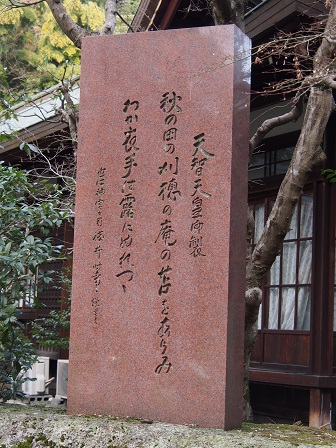 天智天皇御製
秋の田の刈穂の庵の苫をあらみ
わか夜手は露にぬれつゝ